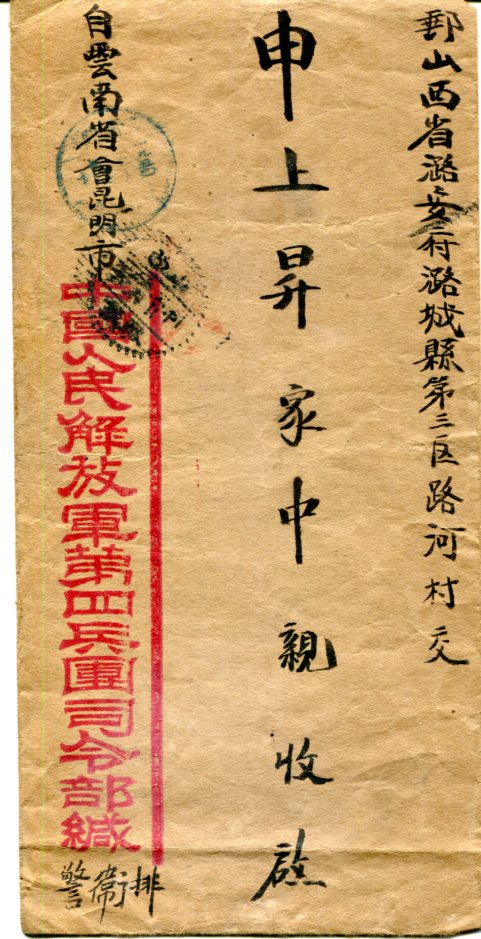 郵山西省潞安府潞城縣第三区路河村交
申上昇家中親收啟
自雲南省會昆明市
中國人民解放軍第四兵團司令部緘
警衛排